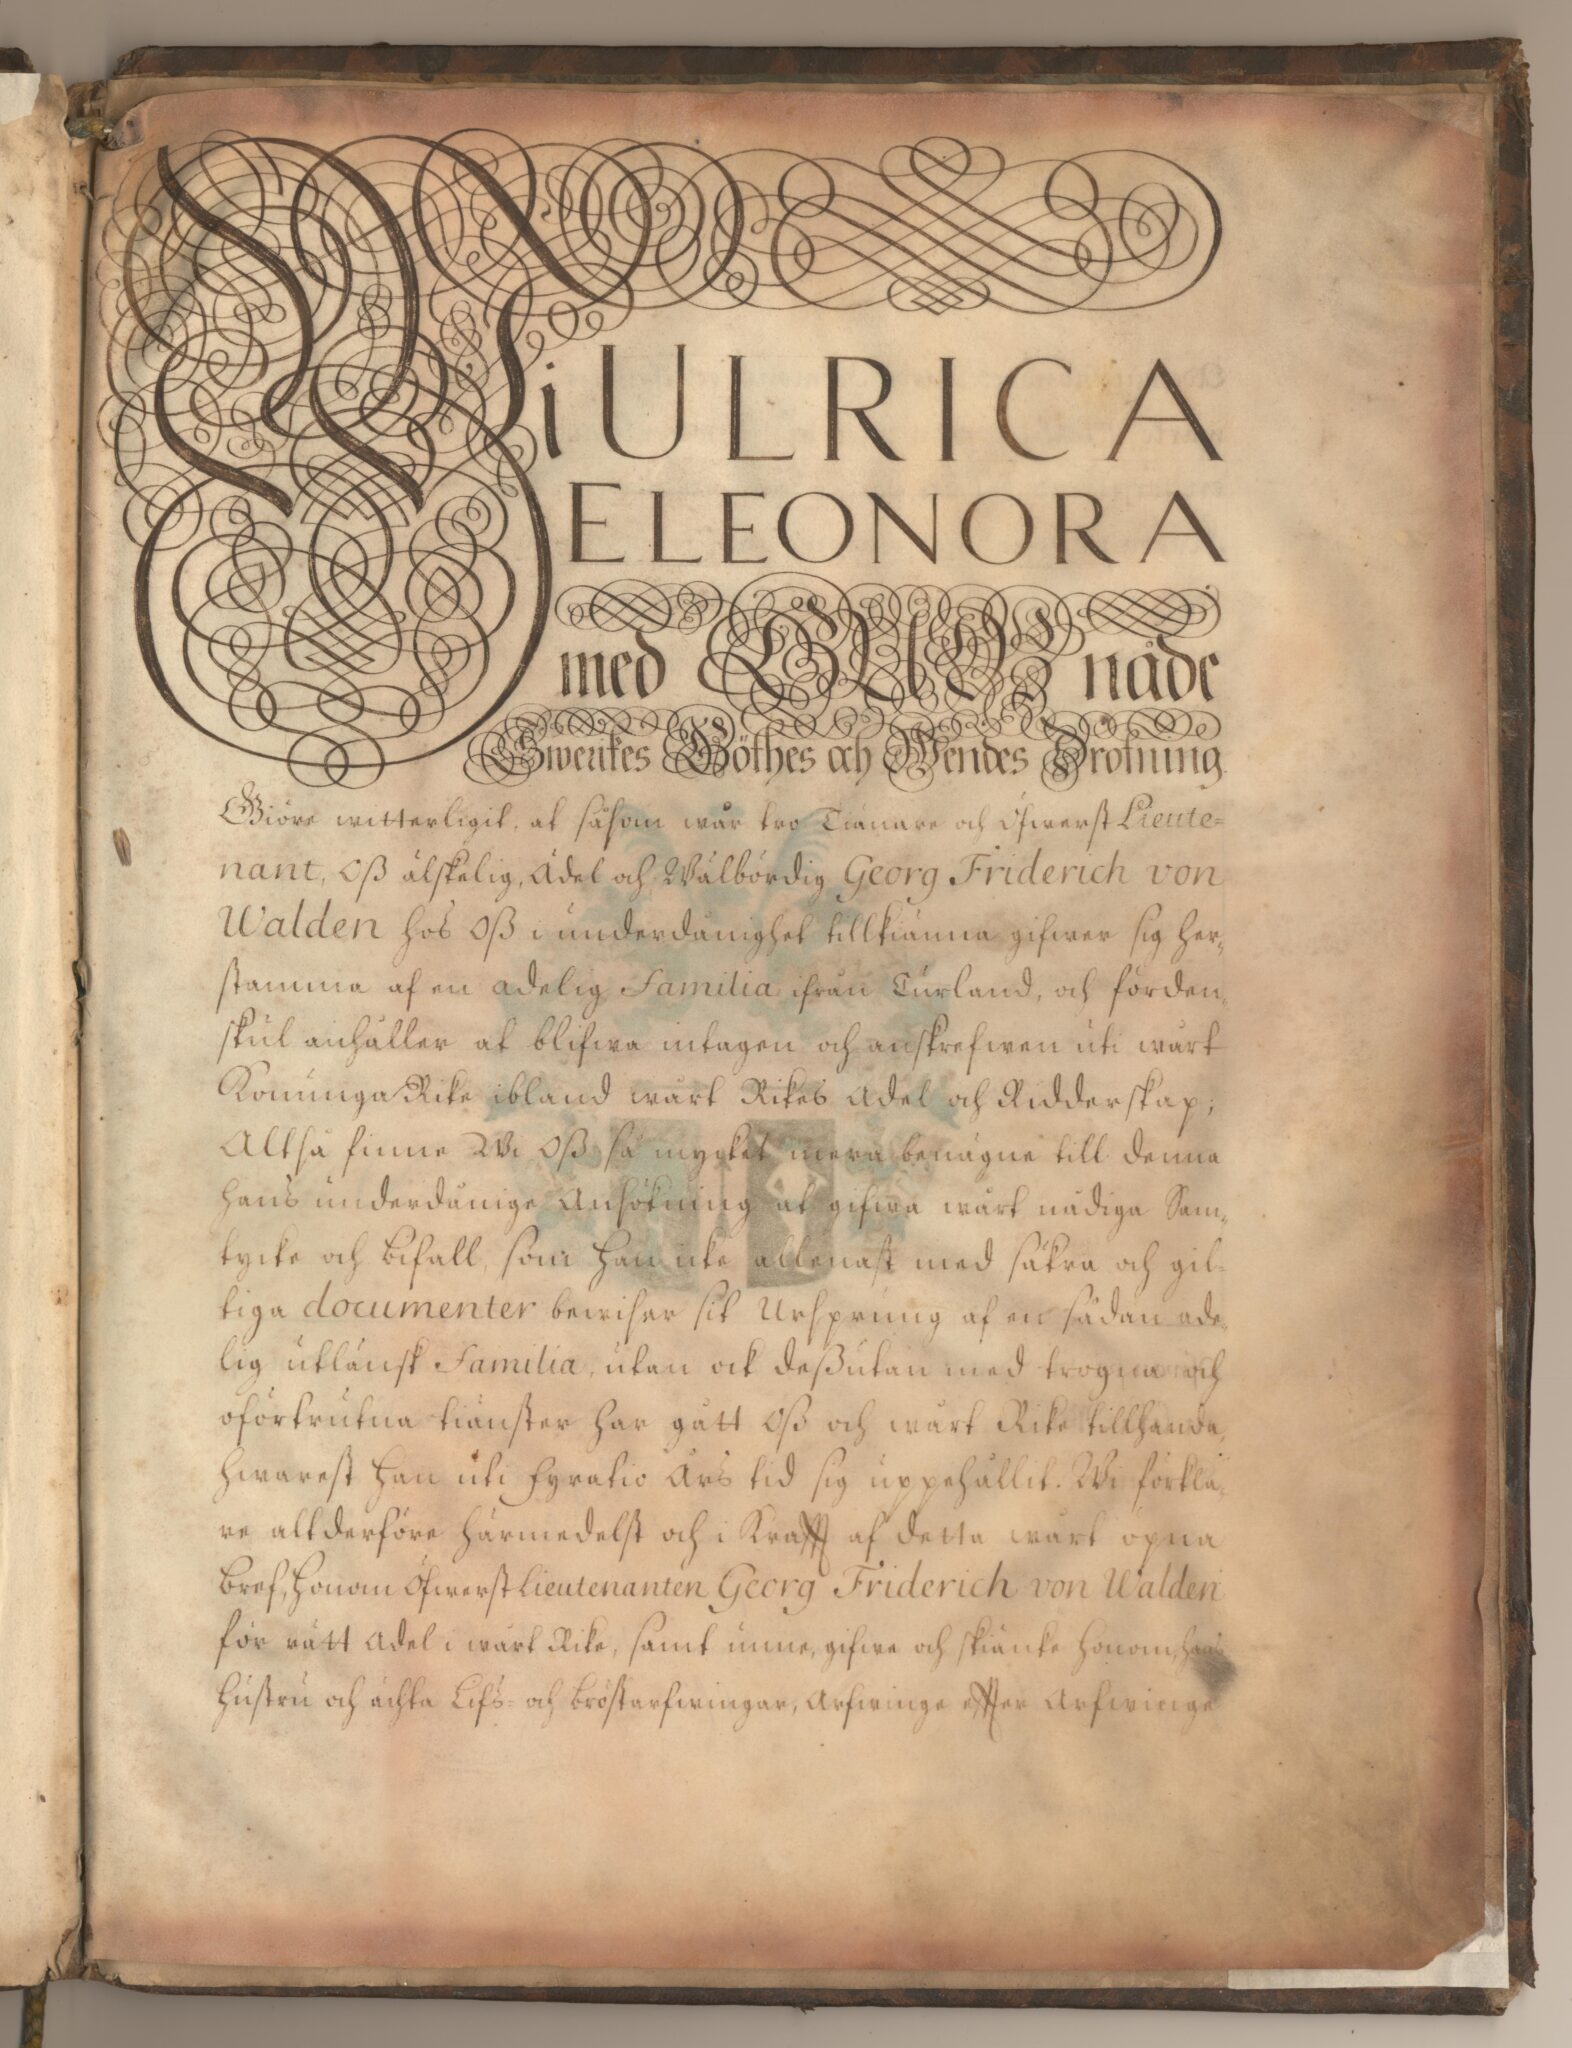 Wi ULRICA
ELEONORA
med GUDZ nåde
Swerikes Göthes och Wendes Drotning
Giöre witterligit, at såsom wår tro Tienare och Öfwerst Lieute=
nant, Oß älskelig, Ädel och Wälbördig Georg Friderich von
Walden hos Oß i underdånighet tillkiänna gifwer sig her=
stamma af en adelig Familia ifrån Curland, och förden=
skul anhåller at blifwa intagen och anskrefwen uti wårt
Konunga Rike ibland wårt Rikes Adel och Ridderskap;
Altså finne Wi Oß så mycket mera benägne till denna
hans underdånige Ansökning at gifwa wårt nådiga Sam=
tycke och bifall, som han icke allenast med säkra och gil=
tiga documenter bewiser sit Ursprung af en sådan ade=
lig utländsk Familia, utan ock deßutan med trogna och
oförtrutna tiänster har gått Oß och wårt Rike tillhanda,
hwarest han uti fyratio Års tid sig uppehållit. Wi förkla=
re altderföre härmedelst och i Krafft af detta wårt öpna
bref, honom Öfwerst Lieutenanten Georg Friderich von Walden
för rätt Adel i wårt Rike, samt unne, gifwe och skiänke honom, hans
hustru och ächta Lifs= och bröstarfwingar, Arfwinge effter Arfwinge